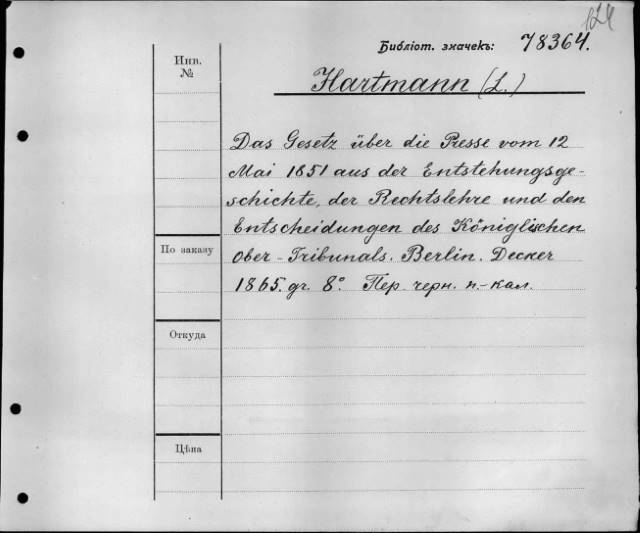 124
Библіот. значекъ: 78364.
Инв.
№
Hartmann (L.)
Das Gesetz über die Presse vom 12
Mai 1851 aus der Entstehungsge-
schichte, der Rechtslehre und den
Entscheidungen des Königlischen
Ober-Tribunals. Berlin. Decker
1865. gr. 8°. Пер. черн. п.-кал.
По заказу
Откуда
Цѣна